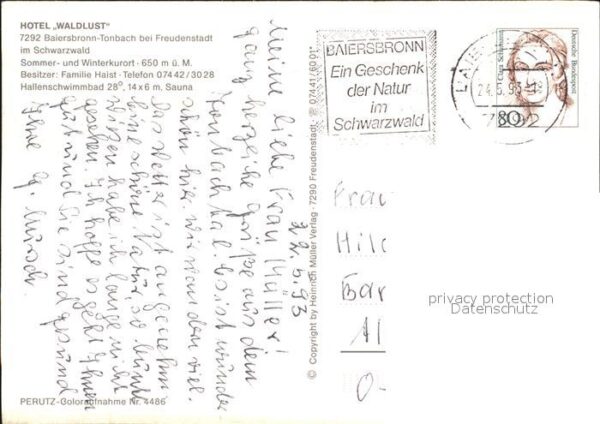 HOTEL „WALDLUST"
7292 Baiersbronn-Tonbach bei Freudenstadt
im Schwarzwald
Sommer- und Winterkurort · 650 m ü. M.
Besitzer: Familie Haist · Telefon 0 74 42 / 30 28
Hallenschwimmbad 28°, 14 x 6 m. Sauna
22.5.93
Meine liebe Frau Müller!
ganz herzliche Grüße aus dem
Tonbachtal. Es ist wunder
schön hier. Wir wandern viel.
Das Wetter ist angenehm
eine schöne Natur, so bunte
Wiesen habe ich lange nicht
gesehen. Ich hoffe es geht Ihnen
gut und Sie sind gesund
Ihre
PERUTZ-Coloraufnahme Nr. 4486
© Copyright by Heinrich Müller Verlag · 7290 Freudenstadt · ℗ 07441/6001
BAIERSBRONN
Ein Geschenk
der Natur
im
Schwarzwald
24.5.93
7292
Clara Schumann
Deutsche Bundespost
80
Frau
Hild
Bar
Al
O-
privacy protection
Datenschutz